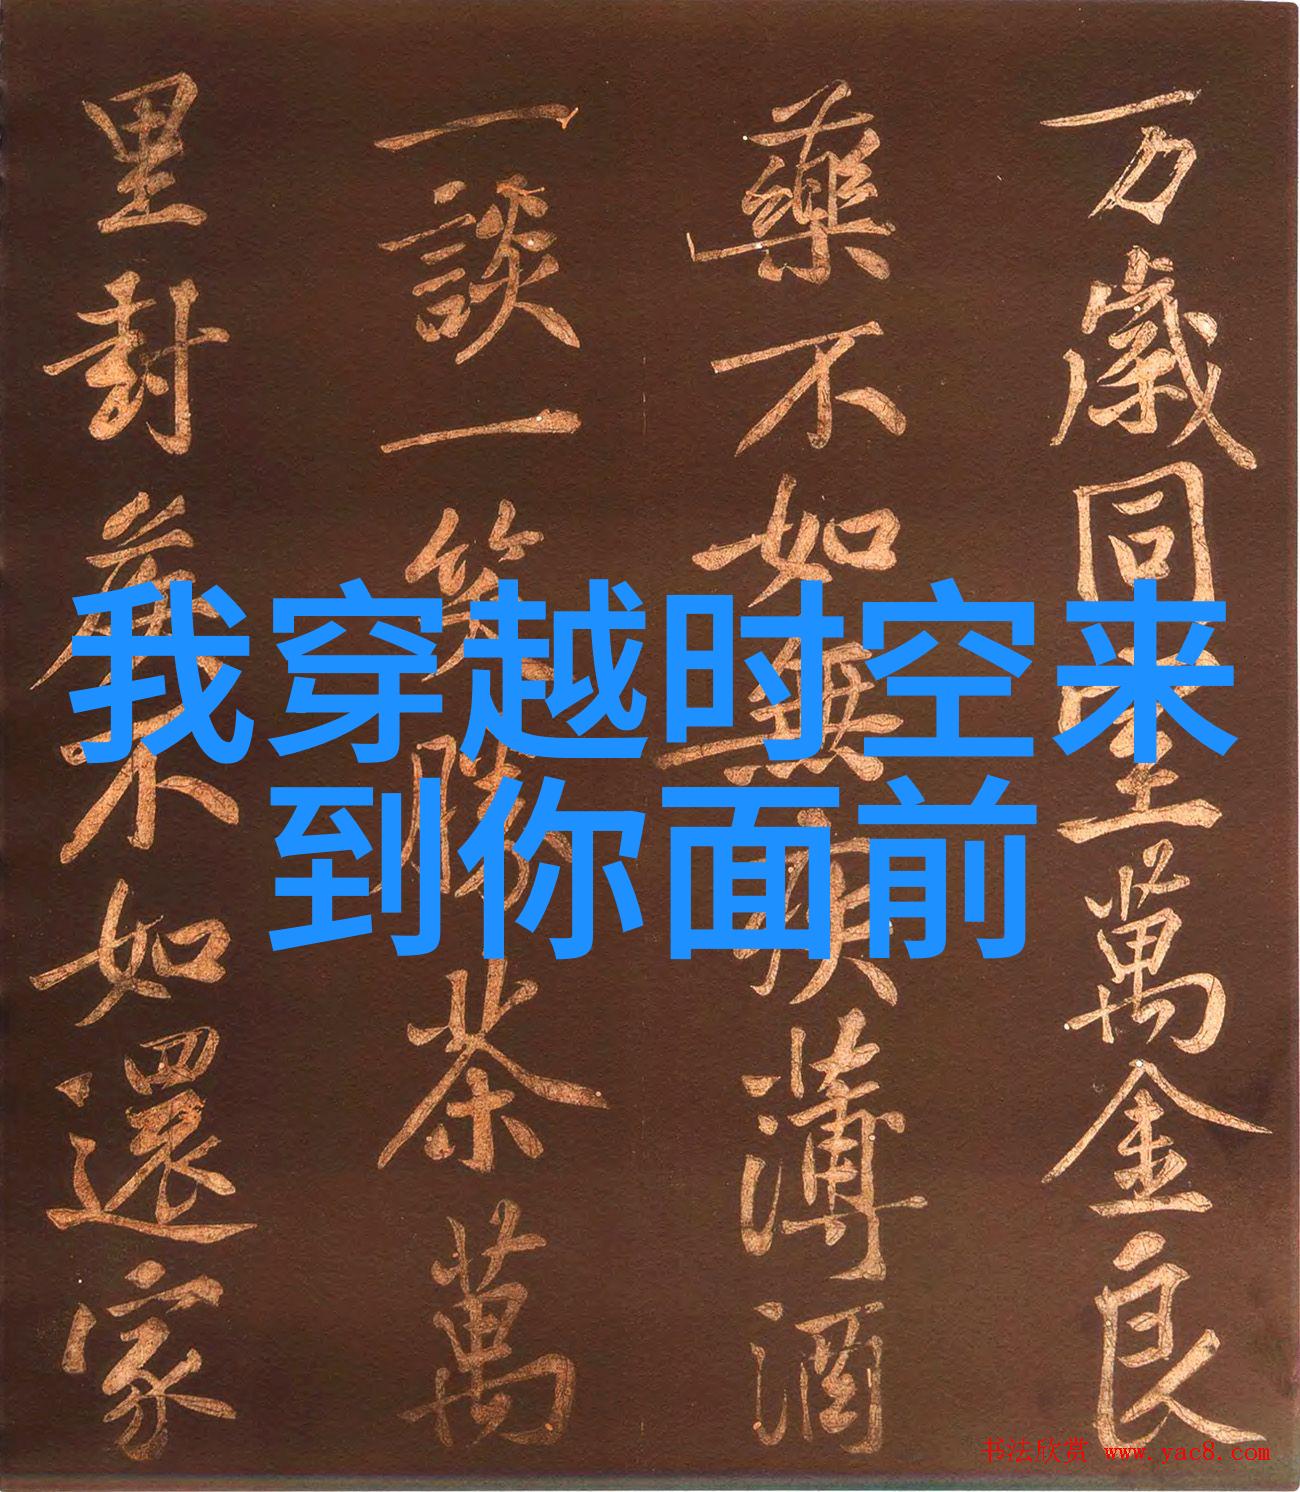 万歲同萬金良
藥不如無薄酒
一談一笑勝茶萬
里封侯不如還家
我穿越时空来
到你面前
书法欣赏 www.yac8.com